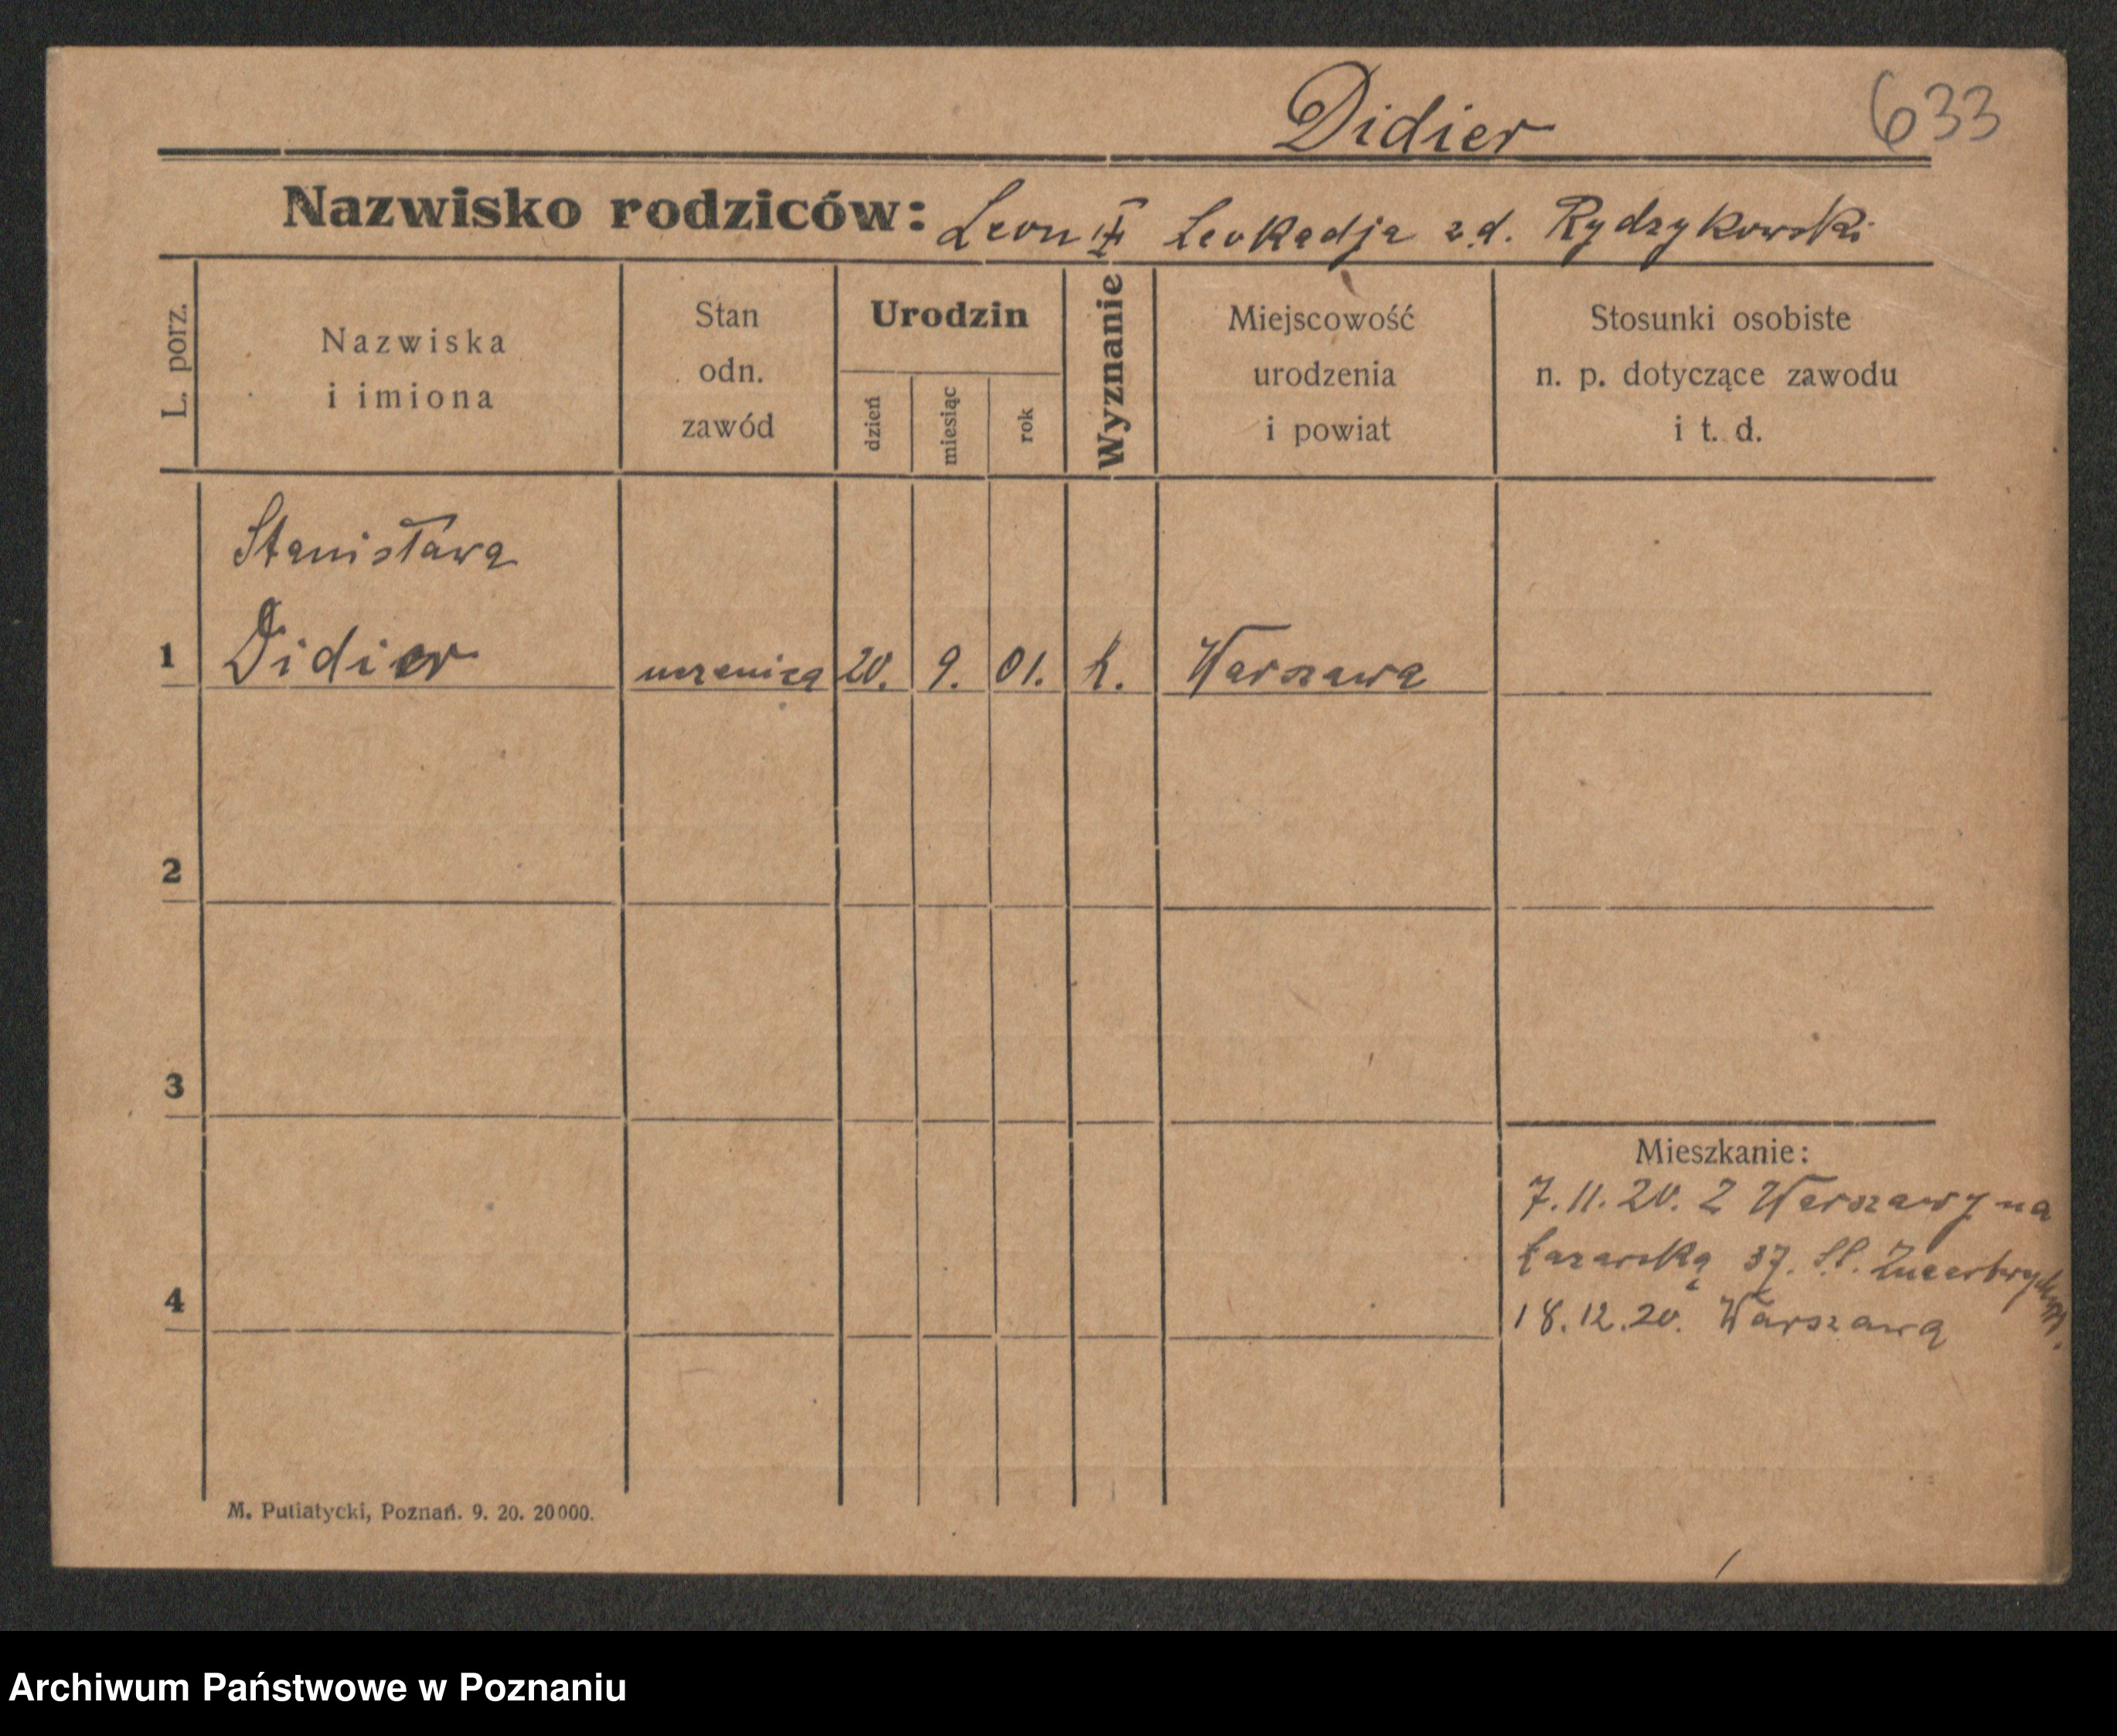 Didier
633
Nazwisko rodziców: Leon i Leokadja z d. Rydzykowski
L. porz.
Nazwiska
i imiona
Stan
odn.
zawód
Urodzin
dzień
miesiąc
rok
Wyznanie
Miejscowość
urodzenia
i powiat
Stosunki osobiste
n. p. dotyczące zawodu
i t. d.
Stanisława
1 Didier uczenica 20. 9. 01. k. Warszawa
2
3
Mieszkanie:
7. 11. 20. Z Warszawy na
Łazarską 37.
4
18. 12. 20. Warszawa
M. Putiatycki, Poznań. 9. 20. 20000.
Archiwum Państwowe w Poznaniu